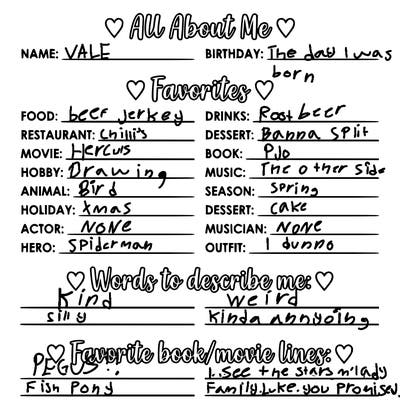 ♡ All About Me ♡
NAME: VALE BIRTHDAY: The day I was born
♡ Favorites ♡
FOOD: beef jerkey DRINKS: Root beer
RESTAURANT: Chilli's DESSERT: Banna Split
MOVIE: Hercuis BOOK: PJo
HOBBY: Drawing MUSIC: The other side
ANIMAL: Bird SEASON: Spring
HOLIDAY: Xmas DESSERT: cake
ACTOR: NoNe MUSICIAN: NoNe
HERO: Spiderman OUTFIT: I dunno
♡ Words to describe me: ♡
Kind weird
silly Kinda annyoing
♡ Favorite book/movie lines: ♡
PEGUS!! I.See the stars m'lady
Fish Pony Family.Luke.you Promised